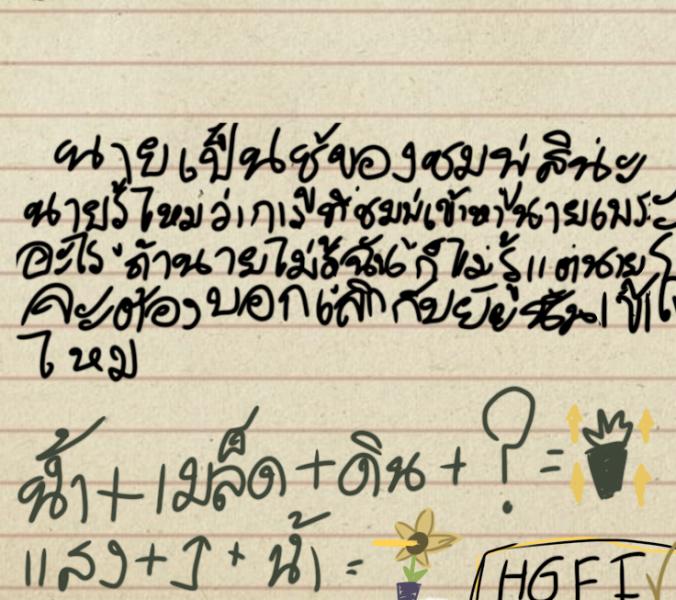 นายเป็นชู้ของชมพู่สินะ
นายรู้ไหมว่าการที่ชมพู่เข้าหานายเพราะ
อะไร ถ้านายไม่รู้ฉันก็ไม่รู้ แต่นาย
จะต้องบอกเลิกกับยัย
ไหม
น้ำ+เมล็ด+ดิน + ? =
แสง+ + น้ำ =
HGFI